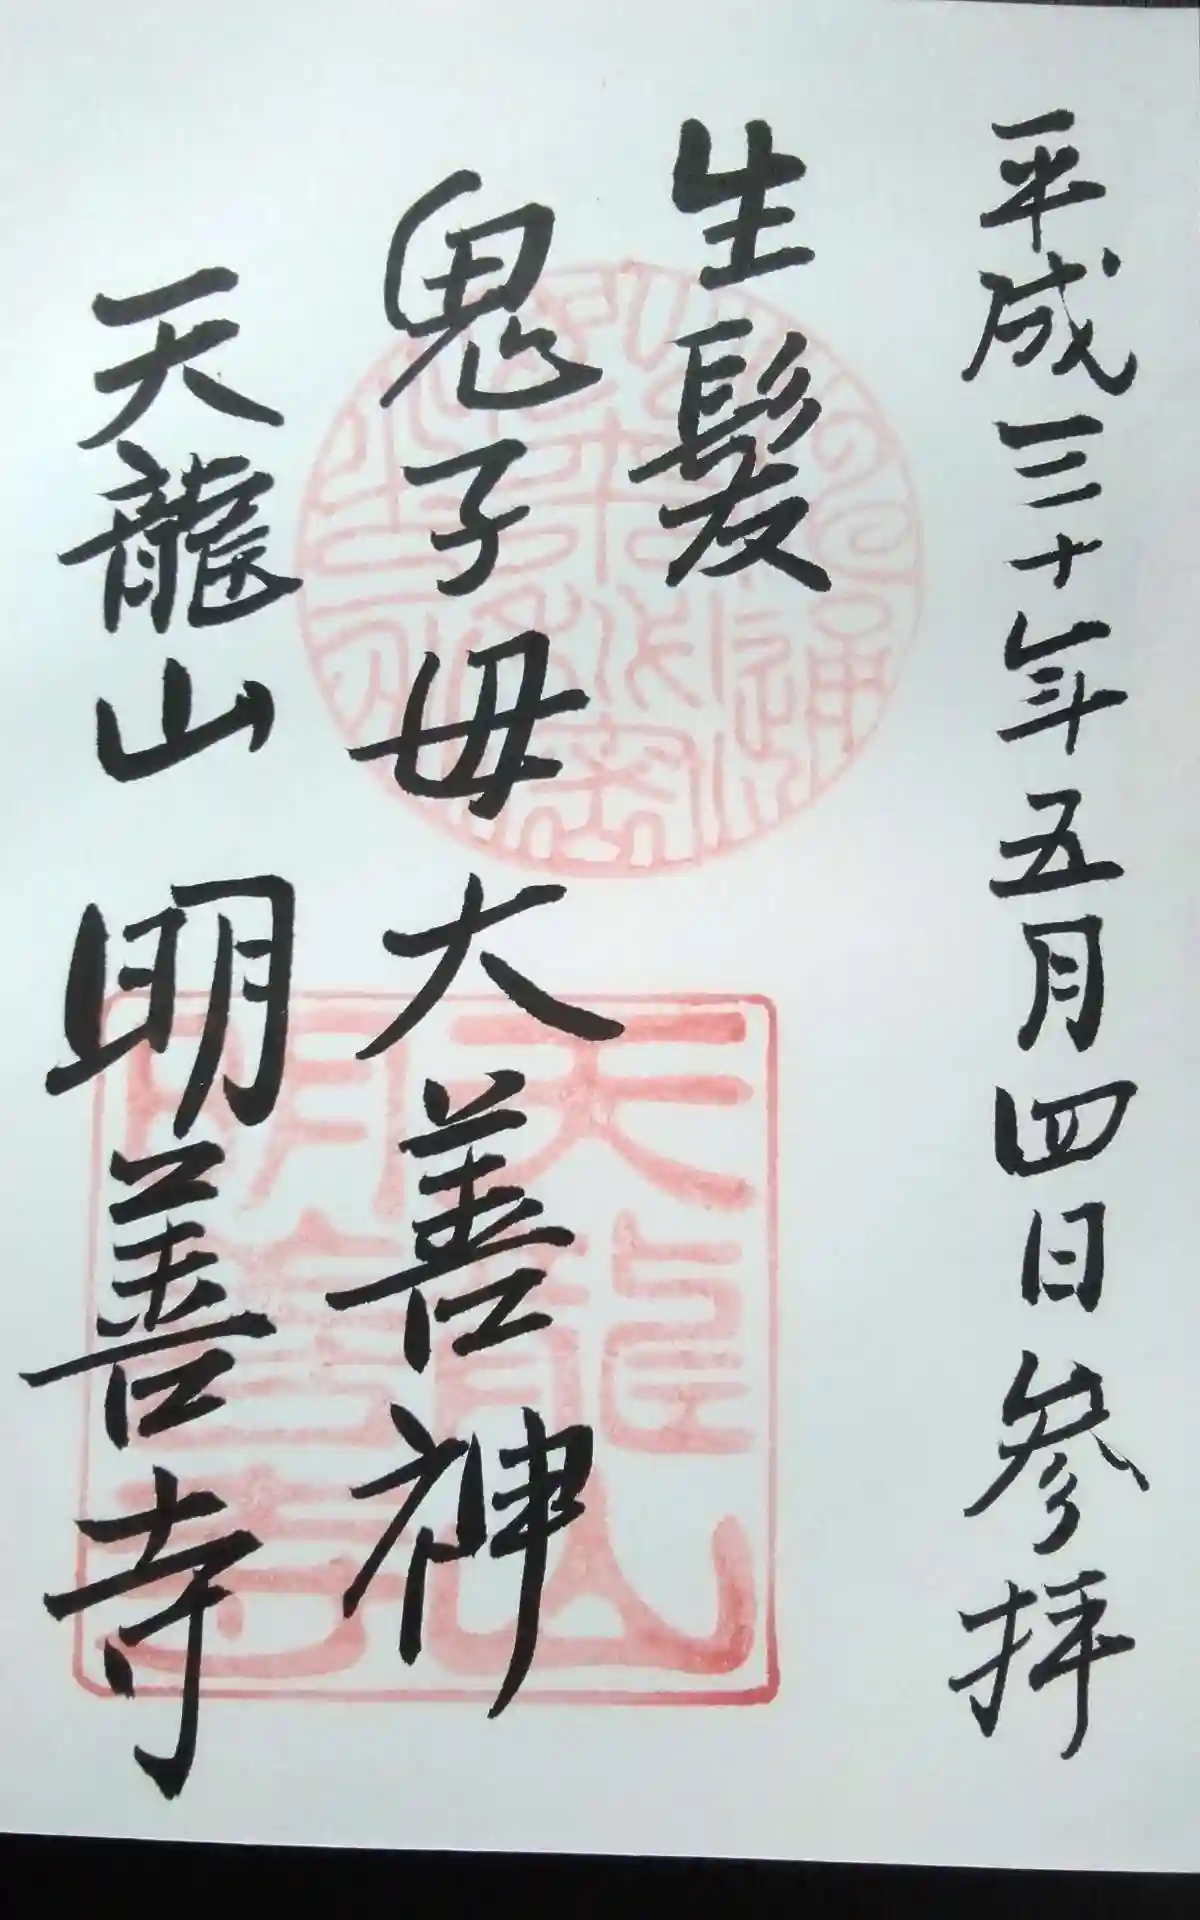 平成三十年五月四日 参拝
生髪
鬼子母大善神
天龍山 明善寺
天龍山
明善寺